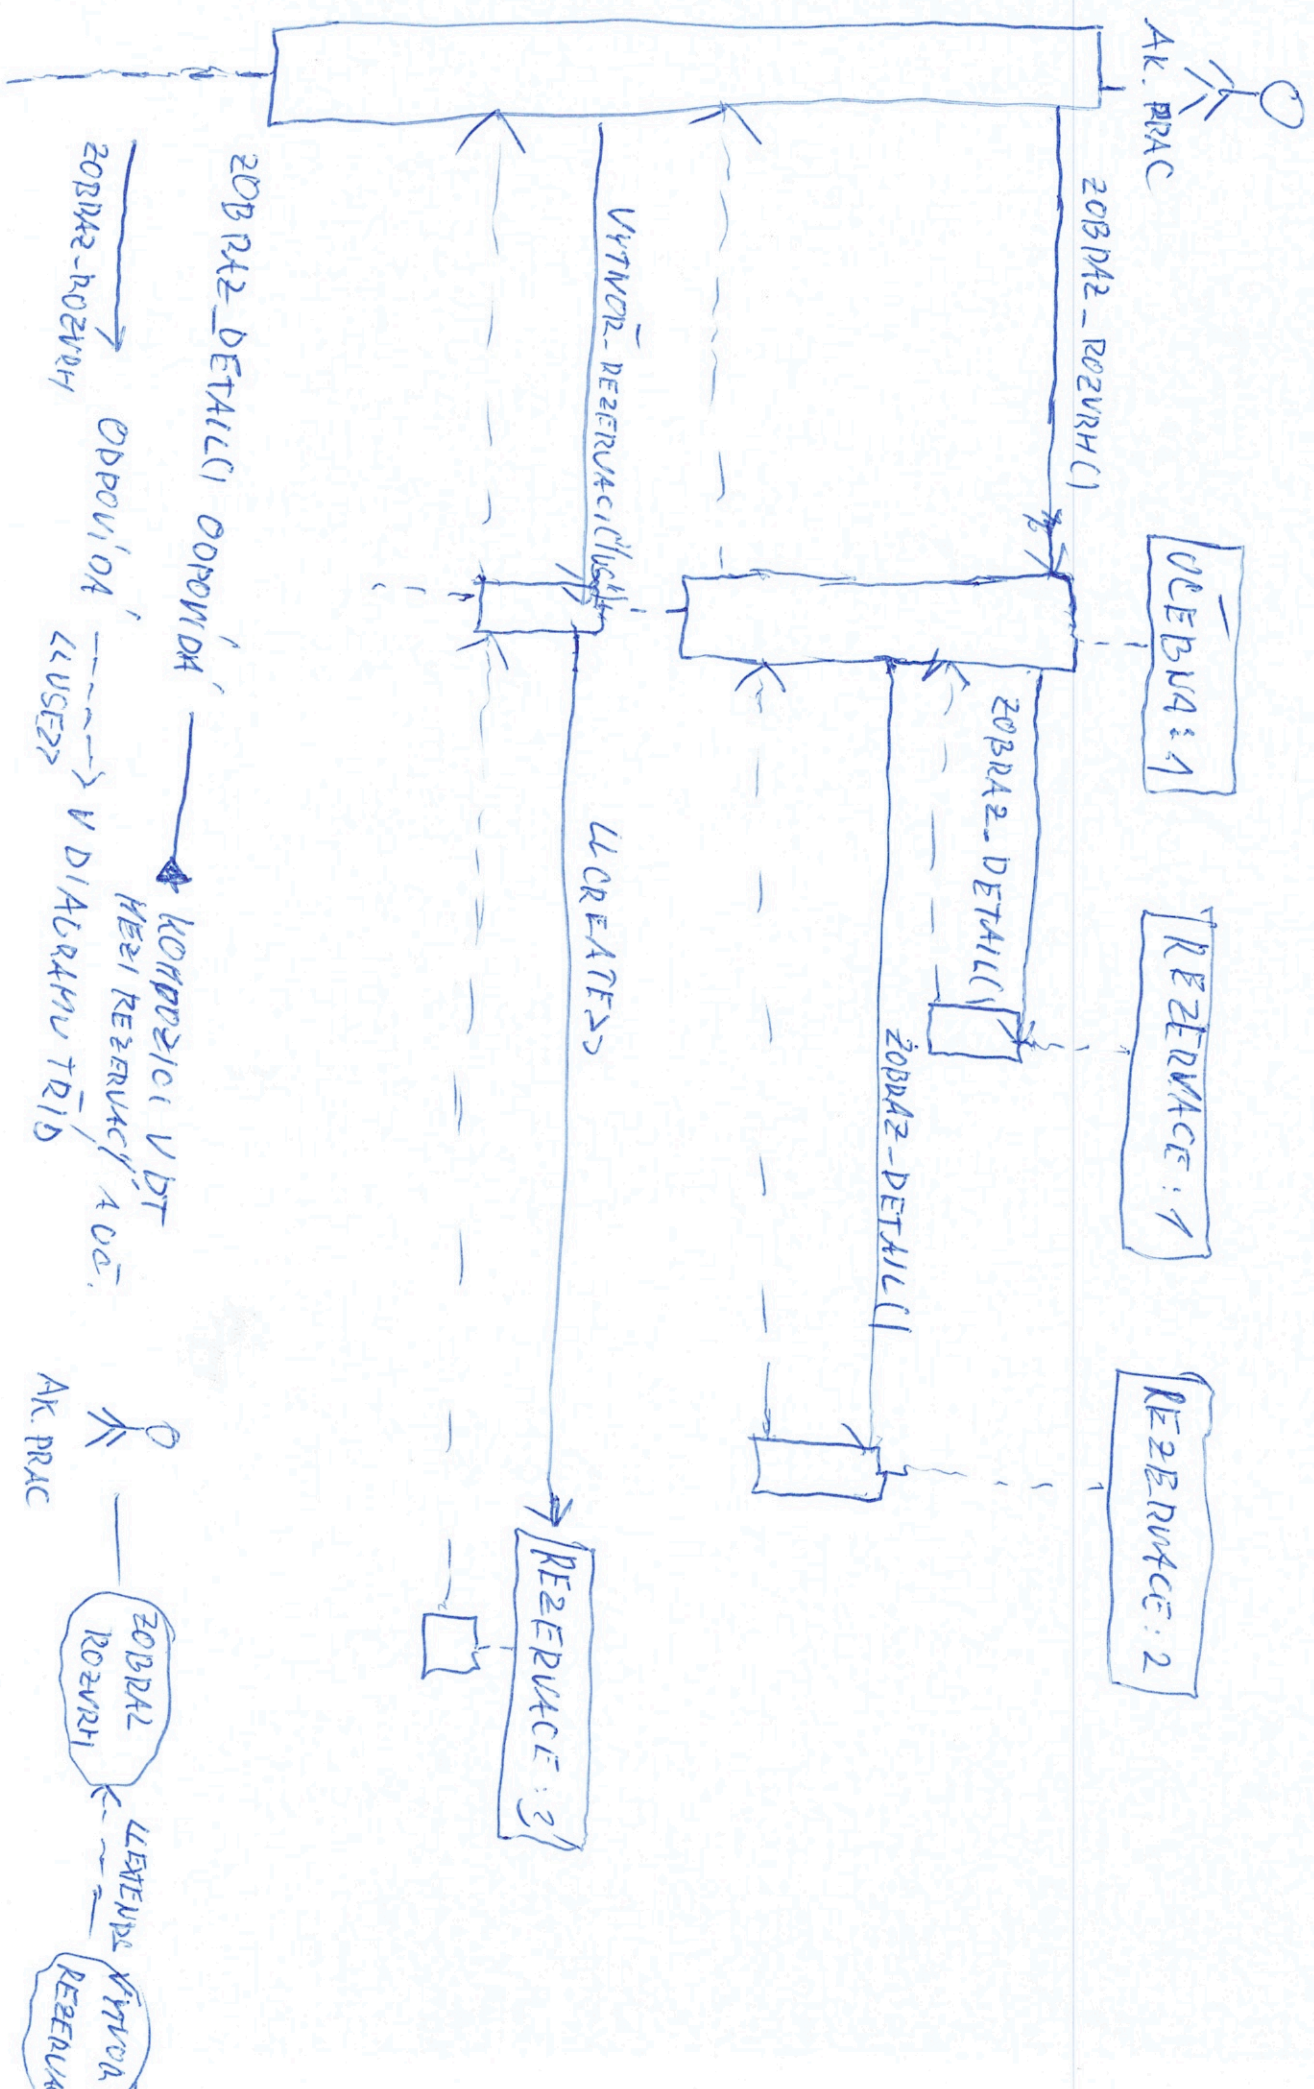 AK. PRAC
UČEBNA:1
REZERVACE:1
REZERVACE:2
ZOBRAZ_ROZVRH()
ZOBRAZ_DETAIL()
ZOBRAZ_DETAIL()
<<CREATE>>
REZERVACE:3
ZOBRAZ_DETAIL() ODPOVÍDÁ
KOMPOZICI V DT
MEZI REZERVACÍ A UČ.
ZOBRAZ_ROZVRH
ODPOVÍDÁ
<<USE>>
V DIAGRAMU TŘÍD
AK. PRAC
ZOBRAZ
ROZVRH